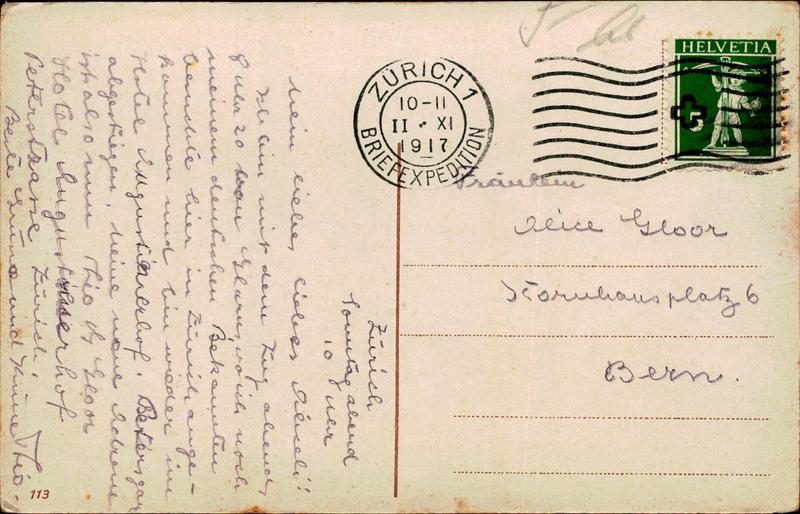 HELVETIA
5
ZÜRICH 1
10-11
11 · XI
1917
BRIEFEXPEDITION
Fräulein
Alice Gloor
Kornhausplatz 6
Bern.
Zürich
Sonntag abend
10 Uhr
Mein liebes, liebes
Ich bin mit dem Zug abends,
8 Uhr 20 von Glarus, wo ich noch
meinem deutschen Bekannten
hier in Zürich ange-
kommen und bin wieder im
Hotel Augustinerhof,
abgestiegen. Meine neue Adresse
ist also nun Theo Gloor
Hotel Augustinerhof
Peterstrasse Zürich.
Beste Grüsse und Küsse Theo.
113